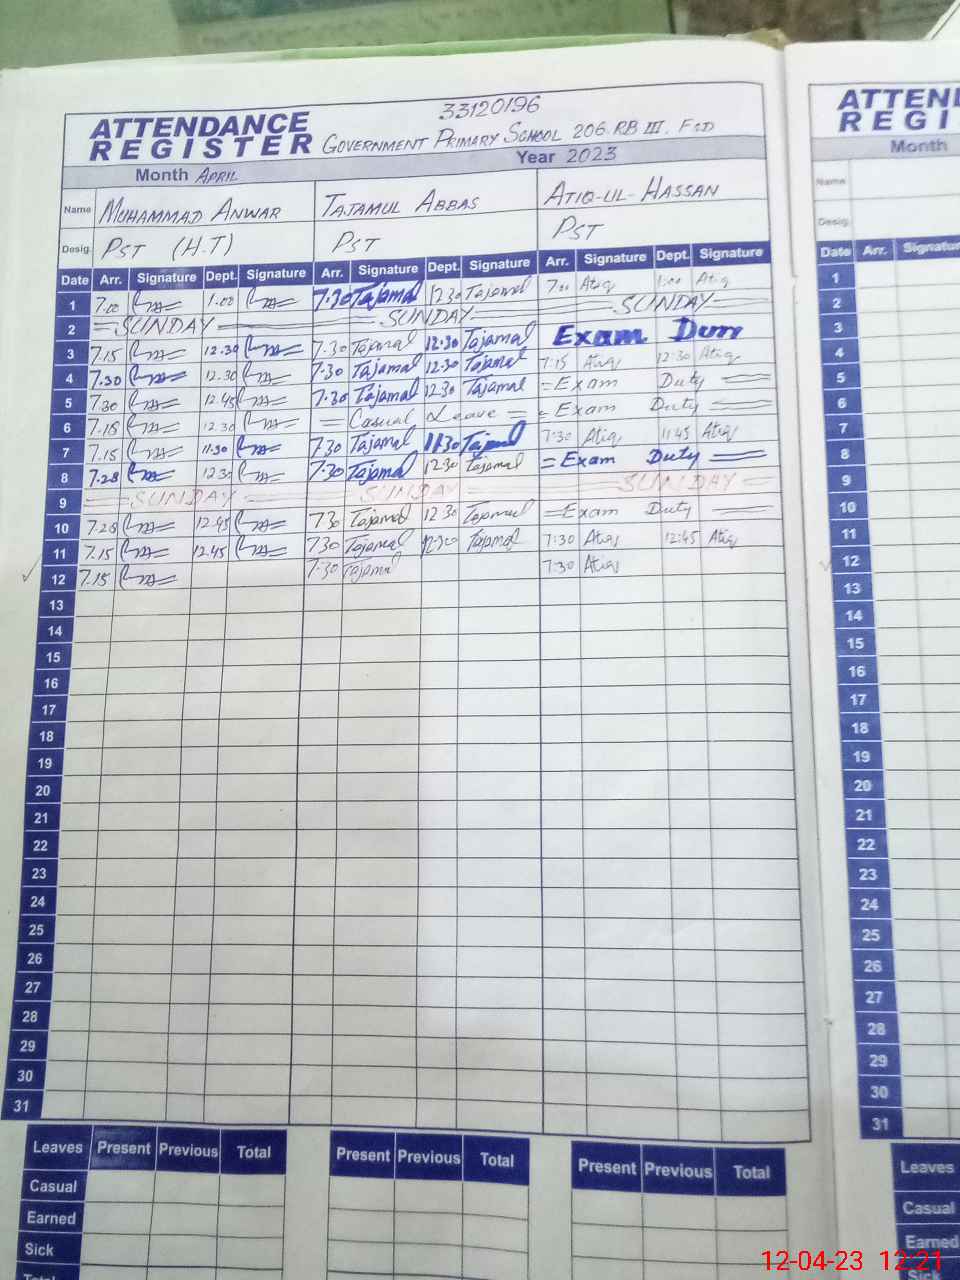 33120196
ATTENDANCE REGISTER GOVERNMENT PRIMARY SCHOOL 206 RB III. FSD
Month APRIL Year 2023
Name MUHAMMAD ANWAR TAJAMUL ABBAS ATIQ-UL-HASSAN
Desig. PST (H.T) PST PST
Date Arr. Signature Dept. Signature Arr. Signature Dept. Signature Arr. Signature Dept. Signature
1 7.00 1.00 7.30 Tajamal 12.30 Tajamal 7.00 Atiq 1:00 Atiq
2 SUNDAY SUNDAY SUNDAY
3 7.15 12.30 7.30 Tajamal 12.30 Tajamal Exam
4 7.30 12.30 7.30 Tajamal 12.30 Tajamal 7:15 Atiq 12:30 Atiq
5 7.30 12.45 7.30 Tajamal 12.30 Tajamal = Exam Duty
6 7.15 12.30 = Casual Leave = = Exam Duty
7 7.15 11.30 7.30 Tajamal 11.30 Tajamal 7:30 Atiq 11:45 Atiq
8 7.28 12.30 7.30 Tajamal 12.30 Tajamal = Exam Duty
9 SUNDAY SUNDAY SUNDAY
10 7.28 12.45 7.30 Tajamal 12.30 Tajamal = Exam Duty
11 7.15 12.45 7.30 Tajamal 12.30 Tajamal 7:30 Atiq 12:45 Atiq
12 7.15 7.30 Tajamal 7:30 Atiq
13
14
15
16
17
18
19
20
21
22
23
24
25
26
27
28
29
30
31
Leaves Present Previous Total Present Previous Total Present Previous Total
Casual
Earned
Sick
Total
ATTEN
REGI
Month
Name
Desig.
Date Arr. Signatu
1
2
3
4
5
6
7
8
9
10
11
12
13
14
15
16
17
18
19
20
21
22
23
24
25
26
27
28
29
30
31
Leaves
Casual
Earned
Sick
12-04-23 12:21